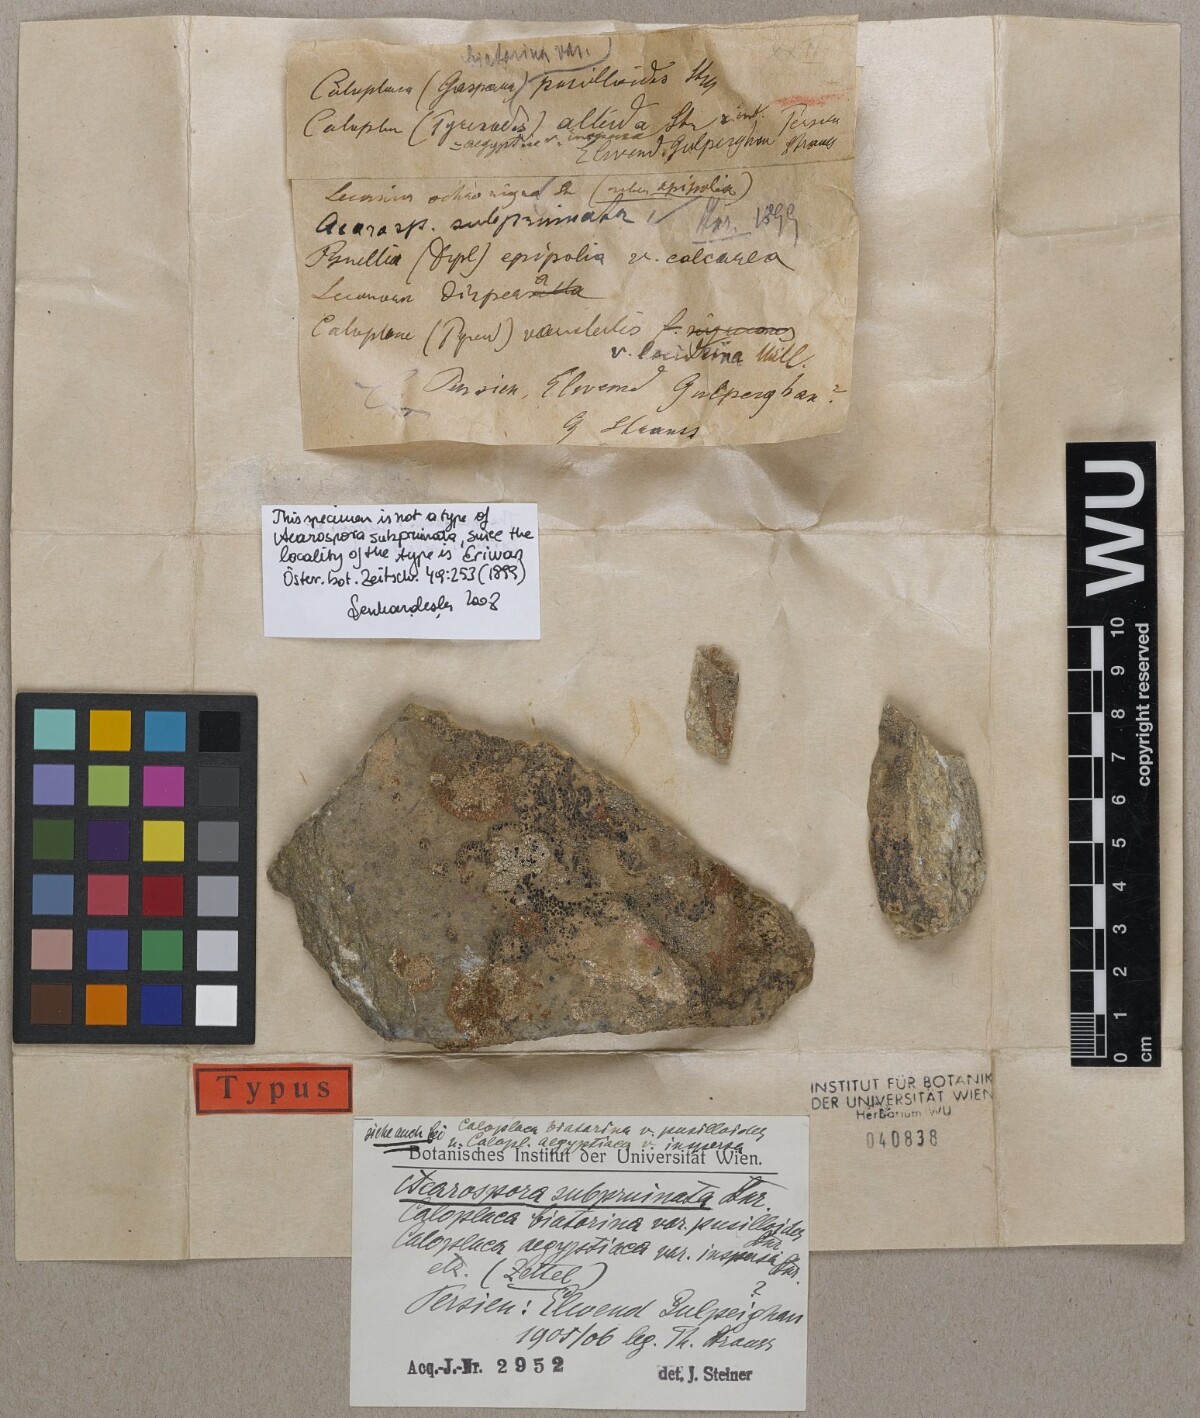 biatorina var.
Caloplaca (Gasparr) pusilloides Str
Caloplac (Pyrenodes) alteida Str
= aegyptiac v. inspersa
Persien
Elwend. Gulpeighan Strauss
ochronigra St (ruber epipolia)
Acarosp. subpruinata Str. 1899
(Dipl) epipolia v. calcarea
Lecanora dispersa
Caloplac (Pyren) variabilis f.
v. Müll.
Persien, Elwend Gulpeighan?
G Strauss
This specimen is not a type of
Acarospora subpruinata, since the
locality of the type is Eriwan
Öster. bot. Zeitschr. 49:253 (1899)
WU
copyright reserved
10 9 8 7 6 5 4 3 2 1 0
cm
Typus
INSTITUT FÜR BOTANIK
DER UNIVERSITÄT WIEN
Herbarium WU
040838
siehe auch bei Caloplaca biatorina v. pusilloides
u. Calopl. aegyptiaca v. inspersa
Botanisches Institut der Universität Wien.
Acarospora subpruinata Str.
Caloplaca biatorina var. pusilloides Str.
Caloplaca aegyptiaca var. inspersa Str.
etz. (Zettel)
Persien: Elwend Gulpeighan ?
1905/06 leg. Th. Strauss
Acq.-J.-Nr. 2952
det. J. Steiner